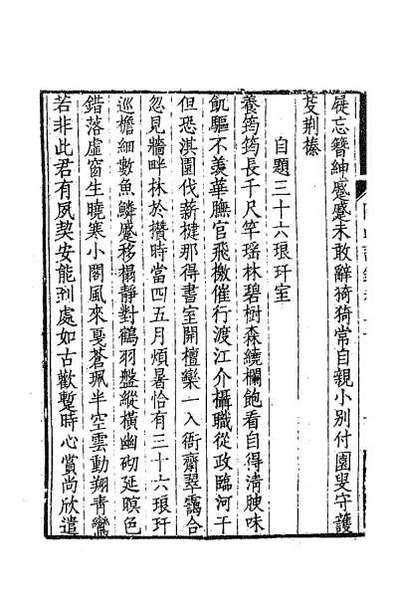 屣忘簪紳蹙蹙未敢辭猗猗常自親小别付園叟守護
芟荆榛
自題三十六琅玕室
養筠筠長千尺竿瑶林碧樹森繞欄飽看自得清腴味
飢驅不羡華膴官飛檄催行渡江介攝職從政臨河干
但恐淇園伐薪揵那得書室開檀欒一入衙齋翠靄合
忽見牆畔林於攢時當四五月煩暑恰有三十六琅玕
巡檐細數魚鱗蹙移榻静對鶴羽盤縱横幽砌延暝色
錯落虚窗生曉寒小閣風來戛蒼珮半空雲動翔青鸞
若非此君有夙契安能到處如古歡蹔時心賞尚欣遣